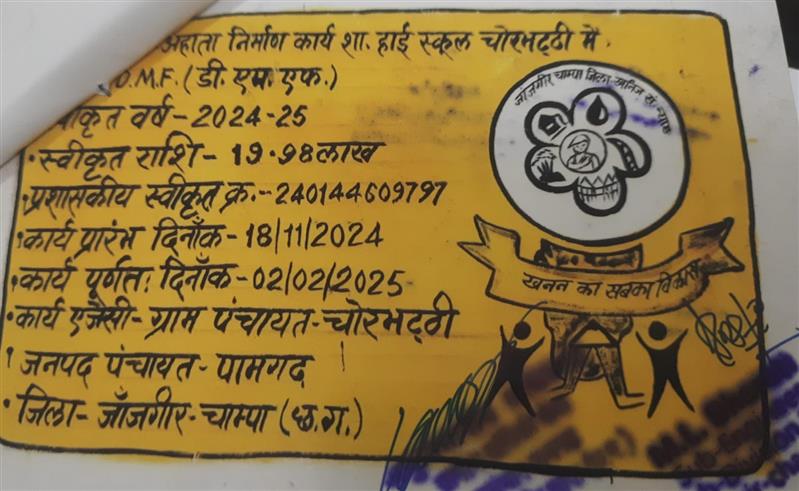 अहाता निर्माण कार्य शा. हाई स्कूल चोरभट्ठी में
D.M.F. (डी. एम. एफ.)
वर्ष - 2024-25
• स्वीकृत राशि - 19.98 लाख
• प्रशासकीय स्वीकृत क्र. - 240144609797
• कार्य प्रारंभ दिनाँक - 18/11/2024
• कार्य पूर्णतः दिनाँक - 02/02/2025
• कार्य एजेंसी - ग्राम पंचायत - चोरभट्ठी
• जनपद पंचायत - पामगढ
• जिला - जाँजगीर - चाम्पा (छ.ग.)
जाँजगीर चाम्पा जिला खनिज सं. न्यास
खनन का सबका विकास